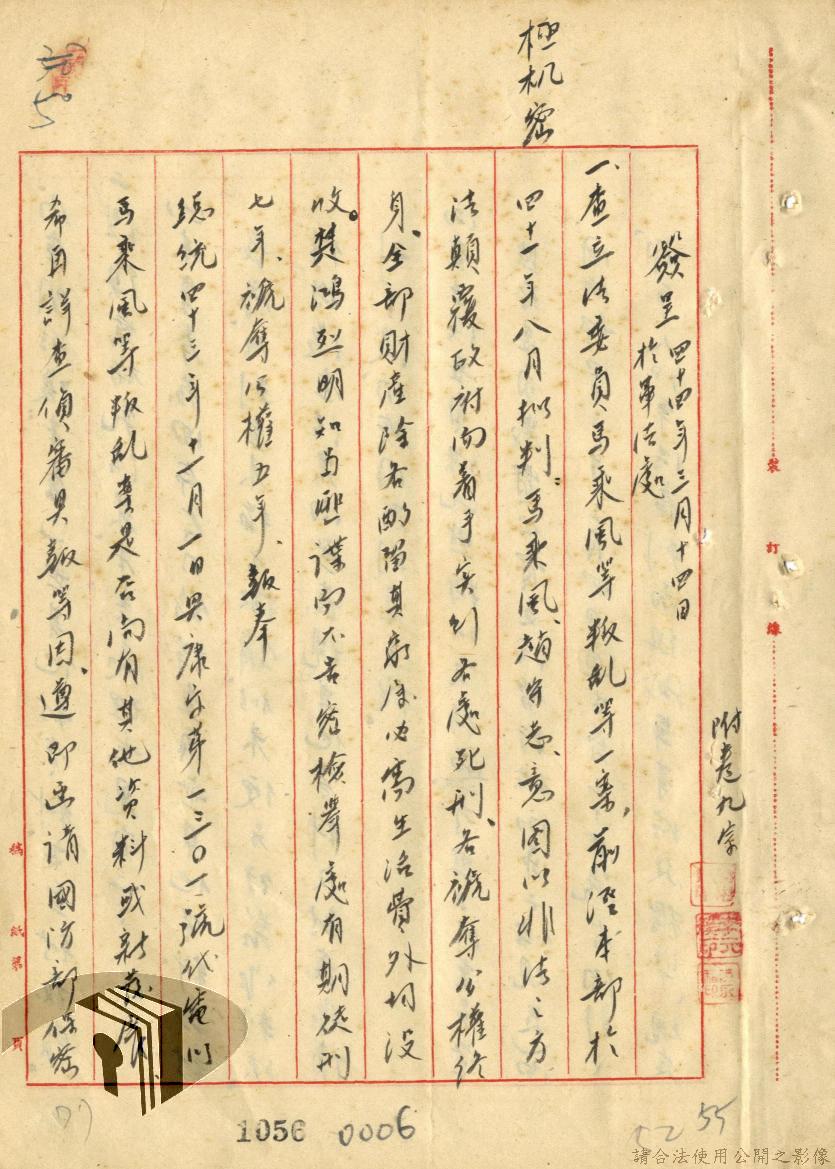 極机密
簽呈 四十四年三月十四日
於軍法處
一、查立法委員馬乘風等叛乱等一案，前經本部於
四十一年八月拟判：馬乘風、趙守志、意图以非法之方
法顛覆政府而着手实行各處死刑、各褫奪公權终
身、全部財產除各酌留其家屬必需生活費外均没
收。樊鴻烈明知匪諜而不告密檢舉處有期徒刑
七年、褫奪公權五年、報奉
總統四十三年十一月一日 康字第一三〇一號代電以
馬乘風等叛乱案是否尚有其他資料或新發展
希再詳查偵審具報等因、遵即函請國防部保密
附卷九宗
裝
訂
線
稿紙第 頁
50
1056 0006
52 55
請合法使用公開之影像